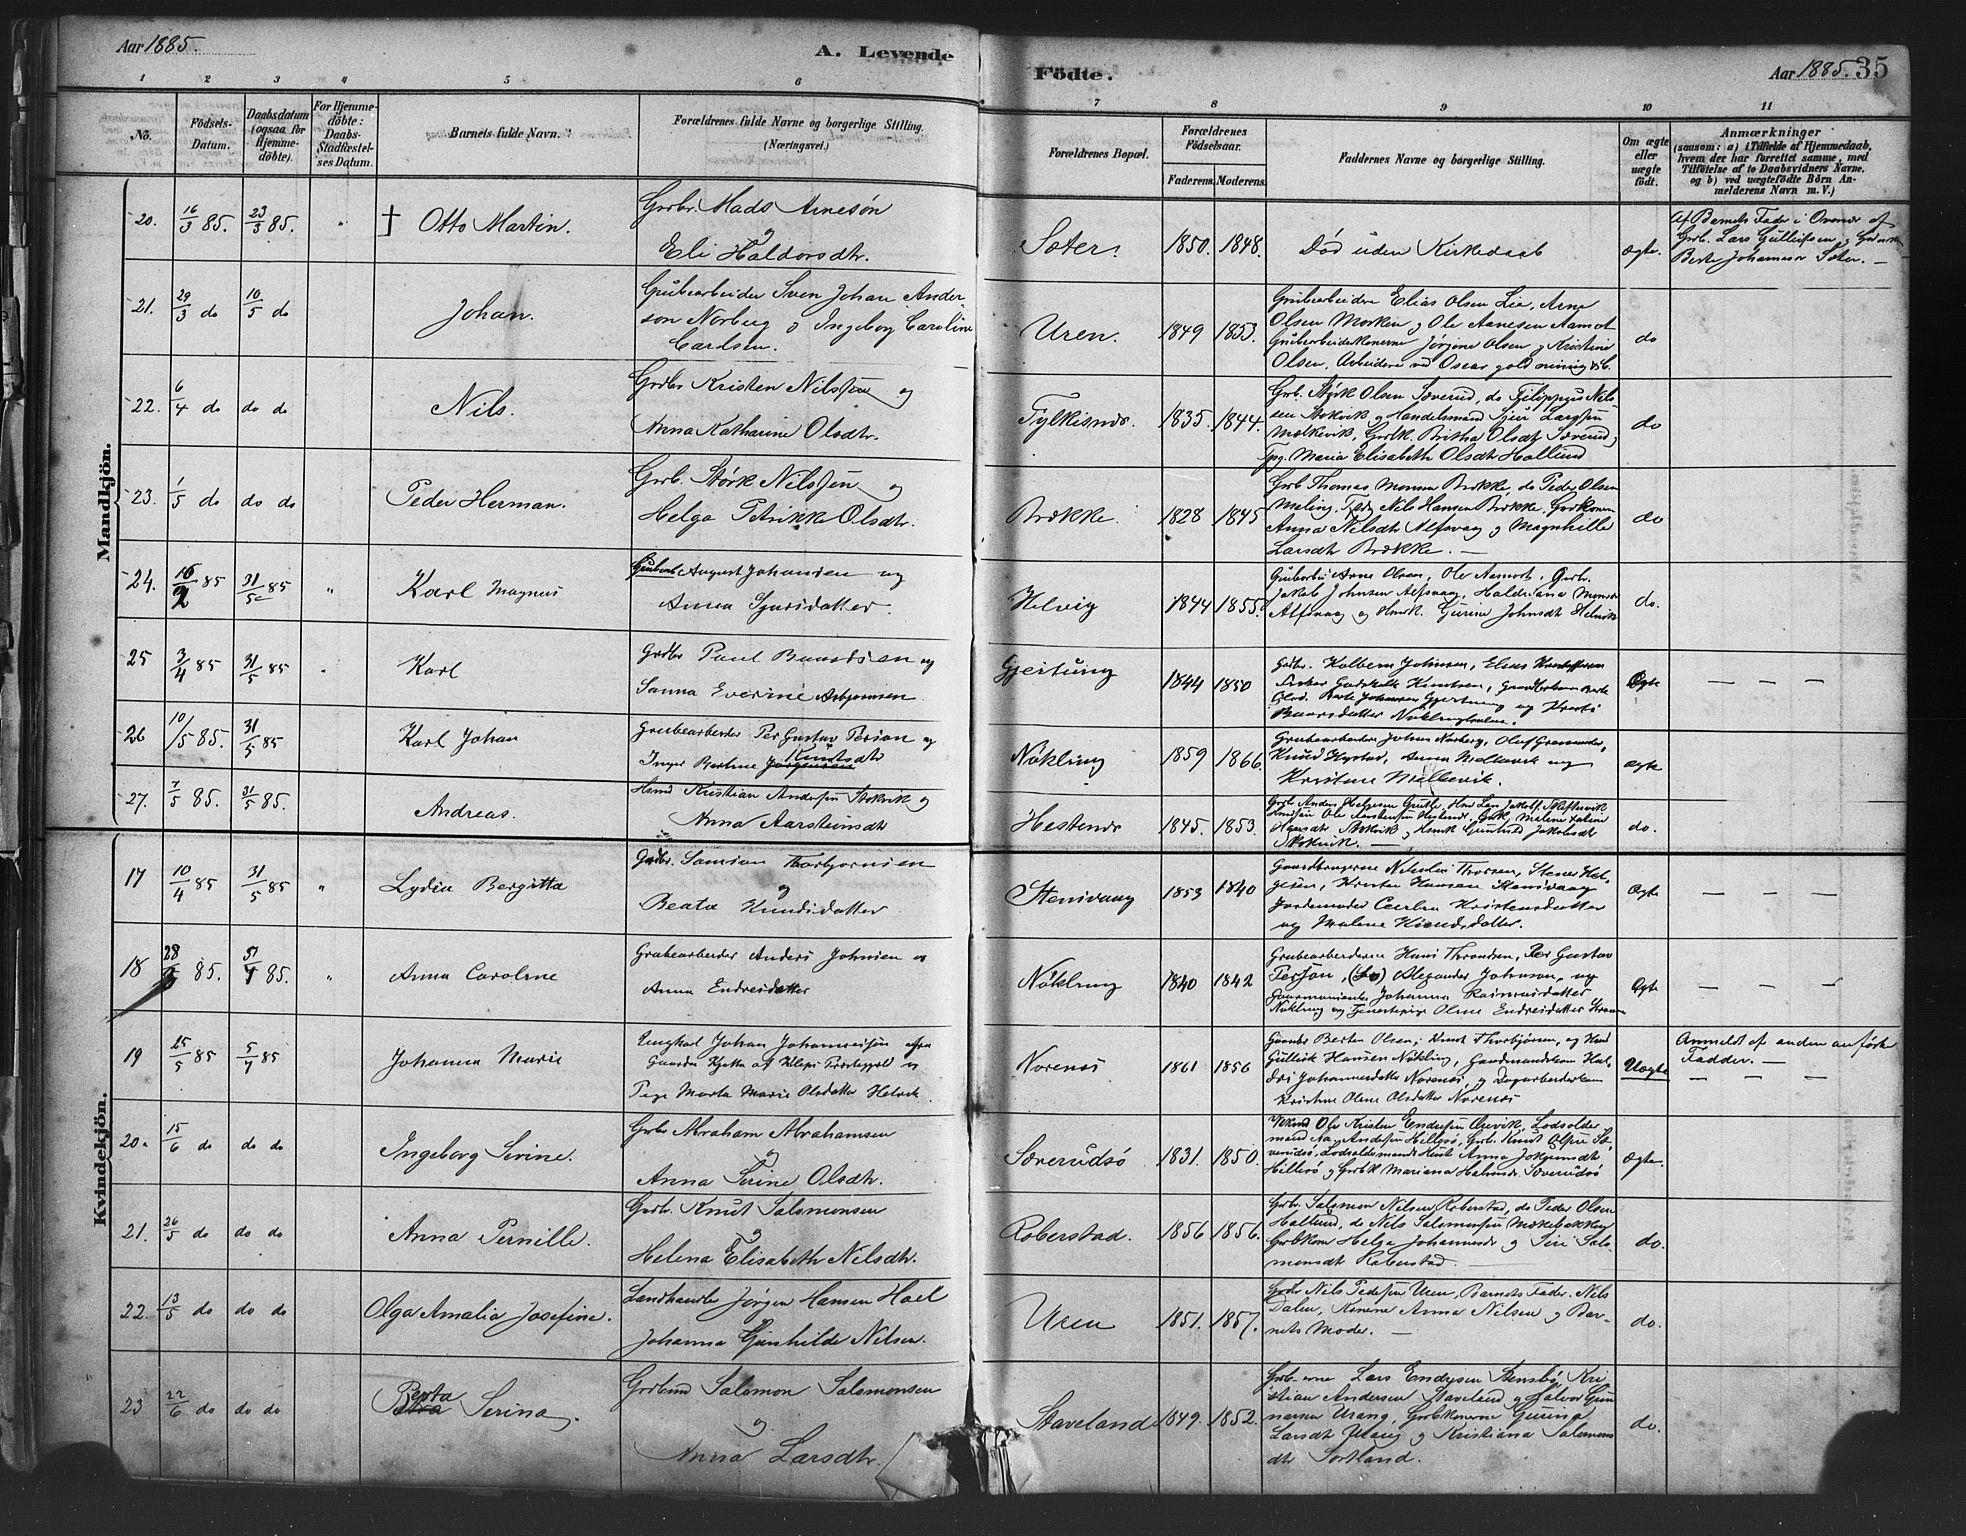 Aar 1885.
A. Levende
Födte.
Aar 1885. 35
1 2 3 4 5 6 7 8 9 10 11
No.
Födsels-Datum.
Daabsdatum (ogsaa for Hjemme-döbte).
For Hjemme-döbte: Daabs-Stadfæstel-ses Datum.
Barnets fulde Navn.
Forældrenes fulde Navne og borgerlige Stilling.
(Næringsvei.)
Forældrenes Bopæl.
Forældrenes Födselsaar.
Faderens. Moderens.
Faddernes Navne og borgerlige Stilling.
Om ægte eller uægte födt.
Anmærkninger
(saasom: a) i Tilfælde af Hjemmedaab,
hvem der har forrettet samme, med
Tilföielse af to Daabsvidners Navne,
og b) ved uægtefödte Börn An-
melderens Navn m. V.)
Mandkjön.
20. 16/3 85. 23/3 85. " † Otto Martin.
Grdbr. Mads Arnesøn
g
Eli Haldorsdtr.
Sæter. 1850. 1848. Død uden Kirkedaab ægte.
Af Barnets Fader i Overvær af
Grdb. Lars Gulleifsen og
Berte Johannesdr Sæter. —
21. 29/3 do 10/5 do Johan.
Grubearbeider Sven Johan Ander-
son Norberg og Ingeborg Caroline
Carlsen.
Uren. 1849 1853.
Grubearbeidere Elias Olsen Lie, Arne
Olsen Morken og Ole Arnesen Aamot
Grubearbeiderkonerne Jørgine Olsen og Kristine
Olsen, Arbeidere ved Oscar gold mining & C.
do
22. 6/4 do do do Nils.
Grdbr Kristen Nilssen og
Anna Katharine Olsdtr.
Fylkisnes. 1835. 1844.
Grb. Størk Olsen Sæverud, do Filippus Nils-
sen Stokvik og Handelsmand Sjur Larssen
Mælkevik, Grdk. Britha Olsdt Sæverud,
Pg. Maria Elisabeth Olsdt Hallund
do
23. 1/5 do do do Peder Herman.
Grb. Størk Nilssen og
Helga Petrikke Olsdtr.
Brække. 1828 1845
Grb Thomas Monsen Brække, do Peder Olsen
Meling, Nils Hansen Brække, Grdkonen
Anna Nilsdt Alfsvaag og Magnhilde
Larsdt Brække. —
do
24. 16/2 85 31/5 85 " Karl Magnus
Grubearb August Johansen og
Anna Sjursdatter.
Helvig 1844 1855
Grubearb: Arne Olsen, Ole Aamot, Grb.
Jakob Johnsen Alfsvaag, Haldriana Monsdr
Alfsvaag og Husk. Gurine Johnsdt Helvik
do.
25 3/4 85 31/5 85 " Karl
Grdbr Paul Baardsen og
Sanna Everine Asbjørnsen
Gjeitung 1844 1850
Grdbr. Kolbein Johnsen, Elias
Gudskalk Knutsen, Berte
Olsd. Berte Johannesen Gjeitung og
Baardsdatter Nökling
Ægte — — —
26 10/5 85. 31/5 85 Karl Johan
Grubearbeider Per Gustav Persson og
Inger Bertine Knutsdtr
Nökling 1859 1866.
Grubearbeider Johan Norberg, Oluf
Knud Hystad, Anna Mælkevik og
Kristine Mælkevik.
ægte
27. 7/5 85. 31/5 85. Andreas.
Husmd Kristian Andersen Stokvik og
Anna Aarsteinsdt
Hestenes 1845. 1853.
Grb Anders Helgesen Grutle, Lars Jakobs. Skiftesvik
Ole Aarsteinsen Hestenes, Grdk, Malene Katrine
Hansdt Stokvik og Husk Gunhild Jakobsdt
Stokvik. —
do.
Kvindekjön.
17 10/4 85 31/5 85 " Lydia Bergitta
Grdbr. Samson Thorbjørnsen
og
Beata Knudsdatter
Stensvaag 1853 1840
Gaardbrugerne Nikolai Thorsen, Stener Hel-
gesen, Kristen Hansen Stensvaag
Jordemoder Cecilia Kristensdatter
og Malene Knudsdatter.
Ægte — — —
18 28/5 85. 5/7 85. " Anna Caroline
Grubearbeider Anders Johnsen og
Anna Endresdatter
Nökling 1840 1842
Grubearbeiderne Hans Throndsen, Per Gustav
Persson, Alexander Johnson, og
Johanna Rasmusdatter
Nökling og Tjenestepige Oline Endresdatter
Ægte — — —
19 25/5 85 5/7 85 Johanna Marie
Ungkarl Johan Johannessøn fra
Gaarden af Kleps Præstegjeld og
Pige Marta Marie Olsdatter Helvik
Norenes 1861 1856
Gaardbr Berten Olsen, Knut Thorbjørsen, og
Gullik Hansen Nökling, Gaardmandskone
Johannesdatter Norenes, og Dagarbeiderkone
Kristine Oline Olsdatter Norenes
Uægte
Anmeldt af anden anførte
Fadder. —
— — —
20. 15/6 do do do Ingeborg Serine.
Grbr Abraham Abrahamsen
og
Anna Serine Olsdtr.
Sæverudsø 1831. 1850.
Ole Kristen Endresen Ørevik, Lodsolder-
mand Andersen Hillesø, Grb. Knut Olsen Sæ-
verudsø, Lodsoldsmands Kone Anna Jokumsdt
Hillesø og Grdk Mariana Halvorsdr Sæverudsø
Ægte.
21. 26/5 do do do Anna Pernille.
Grdbr. Knut Salomonsen
og
Helena Elisabeth Nilsdtr.
Roberstad. 1856 1856.
Grbr. Salomon Nilsen Roberstad, do Peder Olsen
Hallund, do Nils Salomonsen Mækebakken
Grbkone Helga Johannesdr og Siri Salo-
monsdt Roberstad.
do.
22. 13/5 do do do Olga Amalia Josefine.
Landhandler Jørgen Hansen Hoel
Johanna Gunhilde Nilsen.
Uren 1851. 1857.
Grdbr Nils Pedersen Uren, Barnets Fader. Nils
Dalen, Konerne Anna Nilsen og Bar-
nets Moder. —
do.
23 22/6 do do do Berta Serina.
Grdbrmd Salomon Salomonsen
og
Anna Larsdtr.
Staveland 1849. 1852.
Grb-erne Lars Endresen Stensbø, Kri-
stian Andersen Staveland og Halvor Gun-
narsen Urang, Grbkonerne Gurina
Larsdt Urang og Kristiana Salomons
dt Sortland.
do.